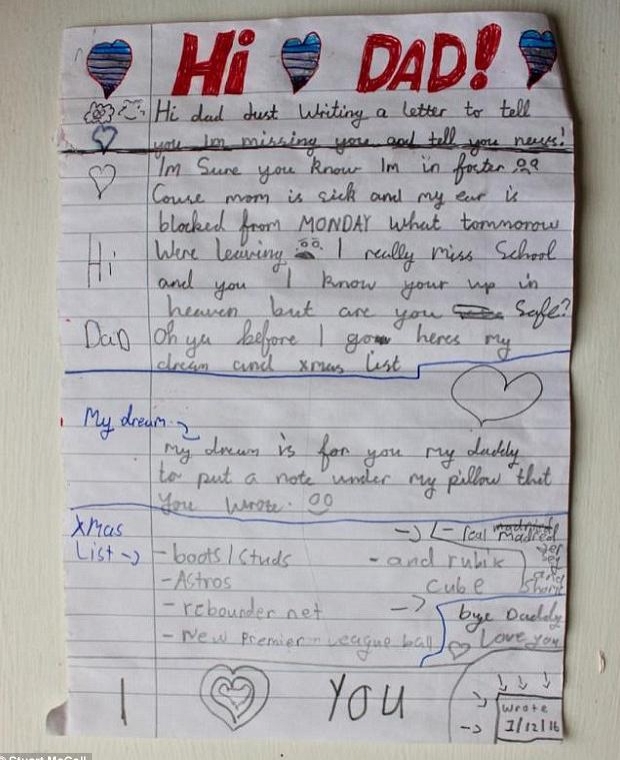 Hi DAD!
Hi dad Just Writing a letter to tell
you Im missing you and tell you news!
Im Sure you know Im in foster
Couse mom is sick and my ear is
blocked from MONDAY What tommorow
Were leaving I really miss School
and you I know your up in
heaven but are you Safe?
Oh ya before I go heres my
dream and xmas list
Hi
DaD
My dream
My dream is for you my daddy
to put a note under my pillow that
you wrote.
Xmas
List
- boots/studs
- Astros
- rebounder net
- New Premier League ball
- real Madred
jersey
and
shorts
- and rubik
cube
bye Daddy
Love you
I YOU
Wrote
1/12/16